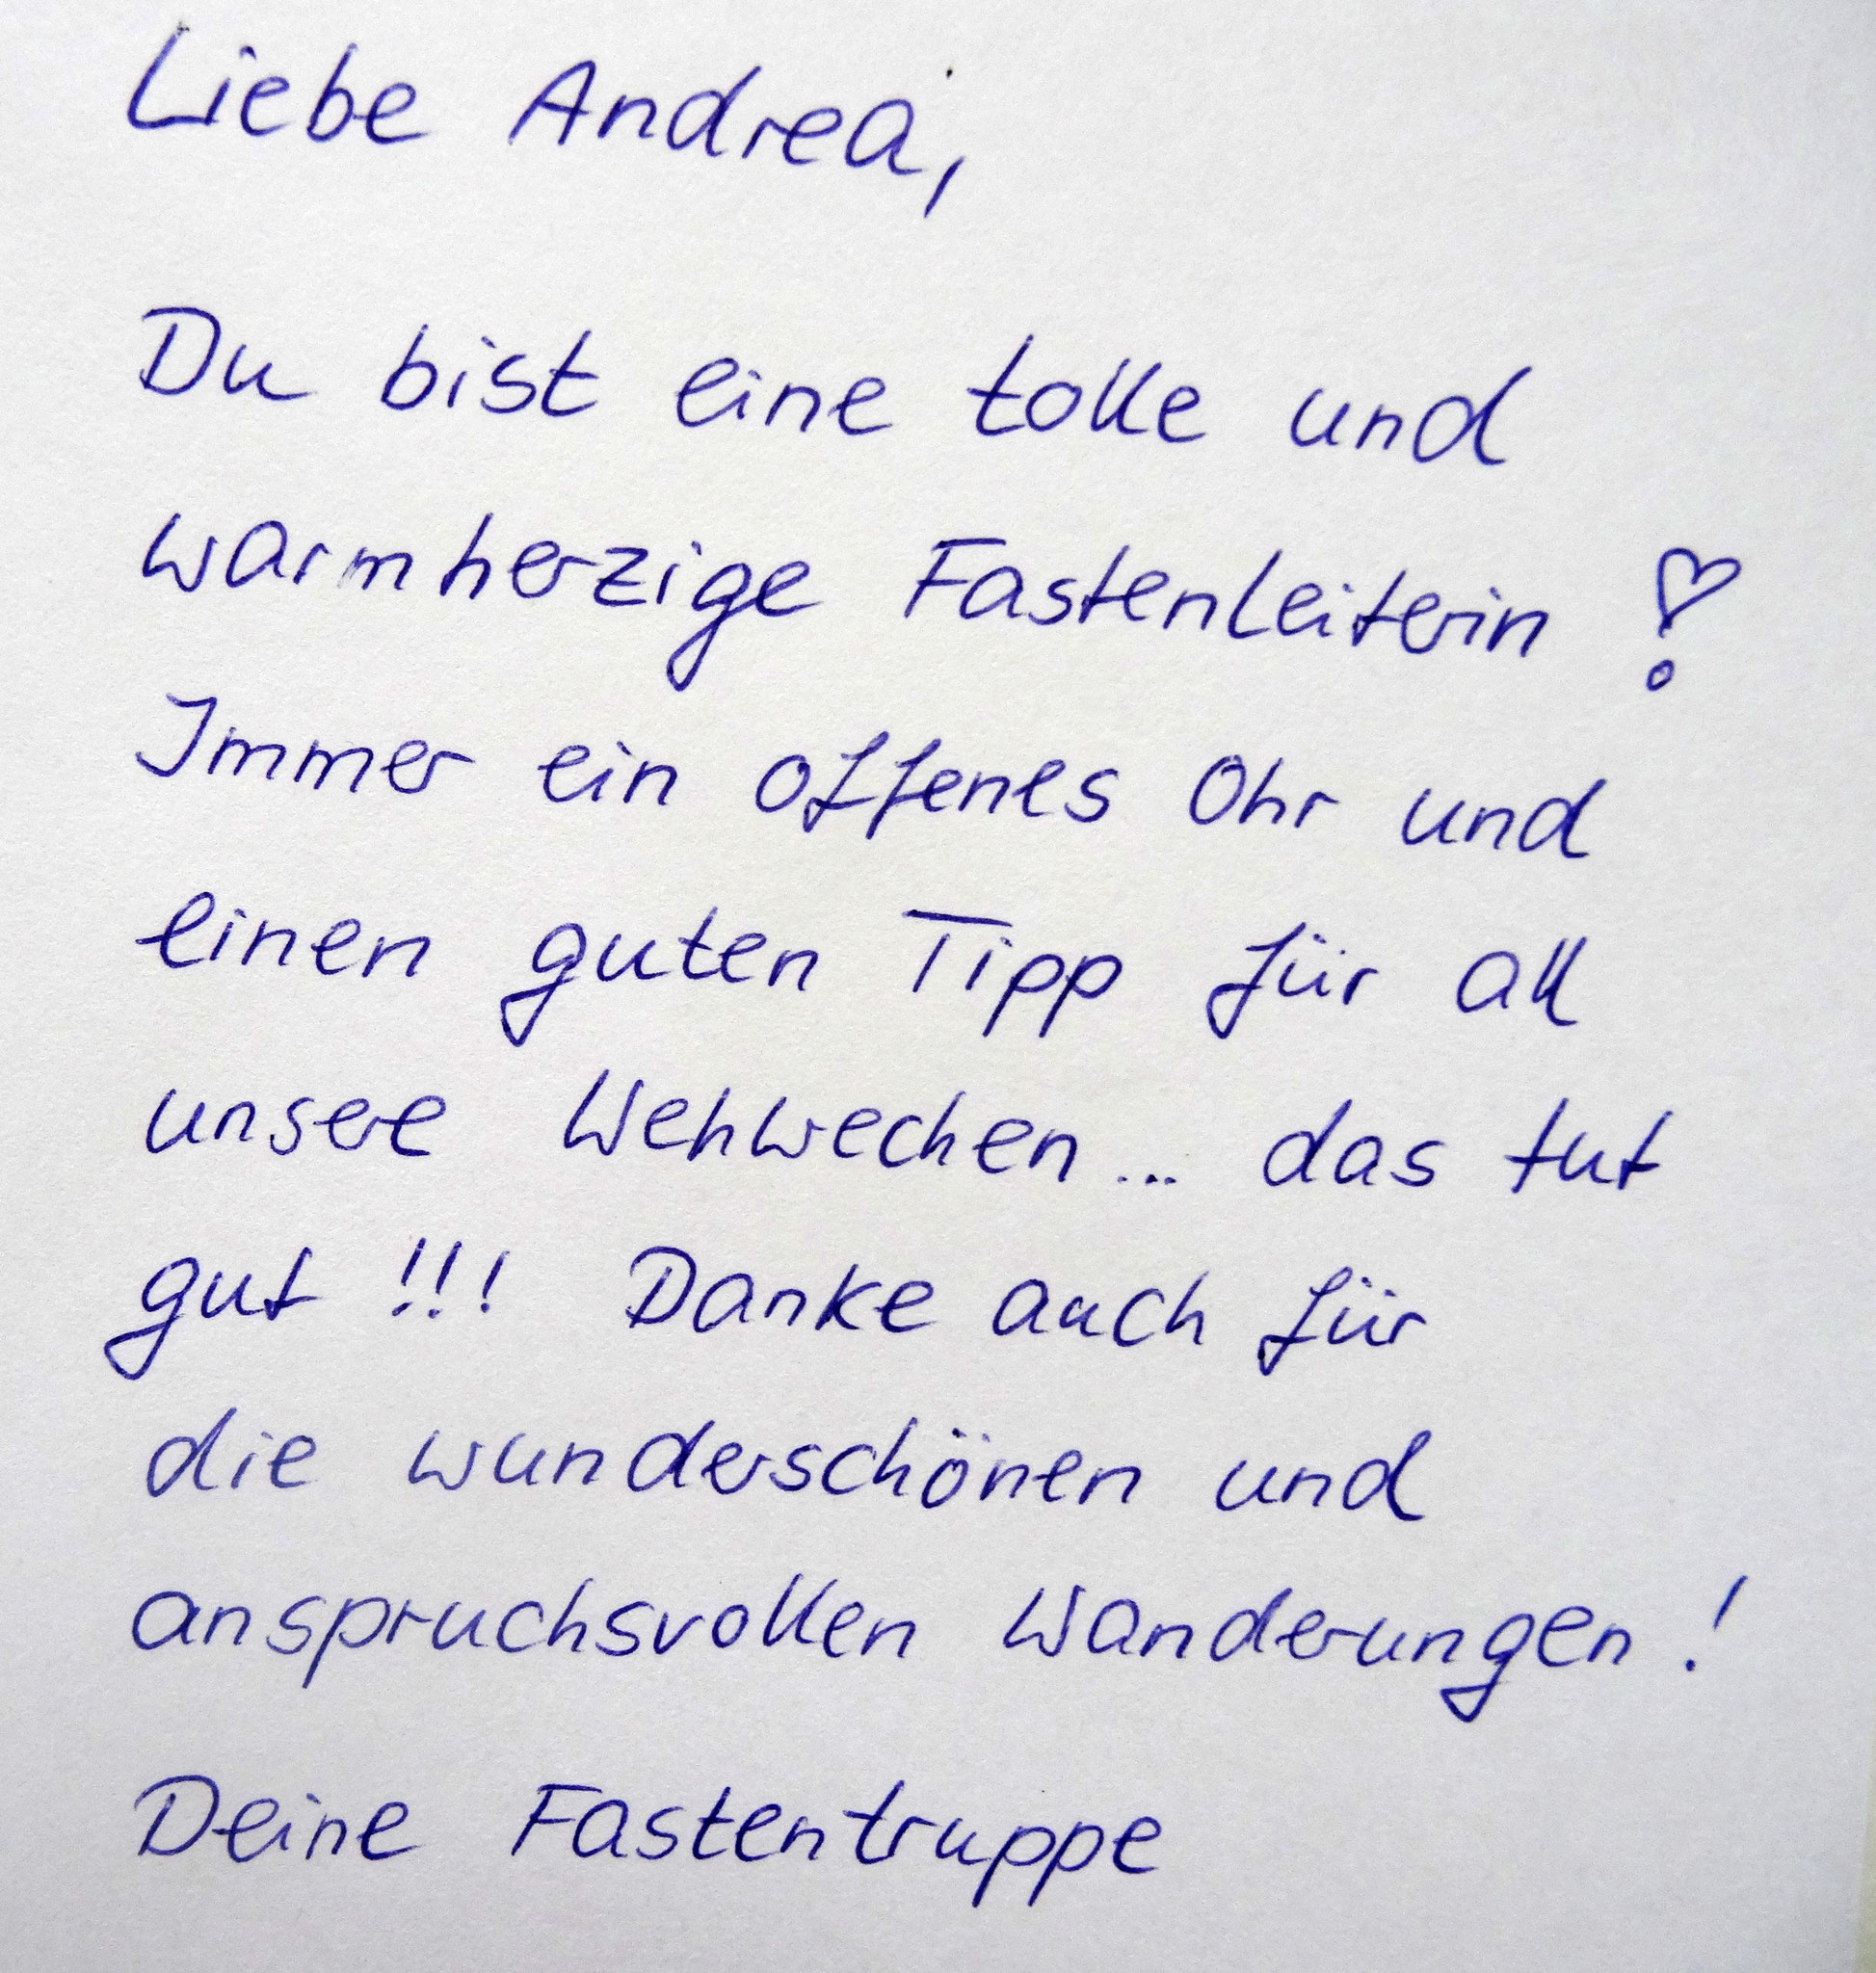 Liebe Andrea,
Du bist eine tolle und
warmherzige Fastenleiterin !
Immer ein offenes Ohr und
einen guten Tipp für all
unsere Wehwechen... das tut
gut !!! Danke auch für
die wunderschönen und
anspruchsvollen Wanderungen !
Deine Fastentruppe